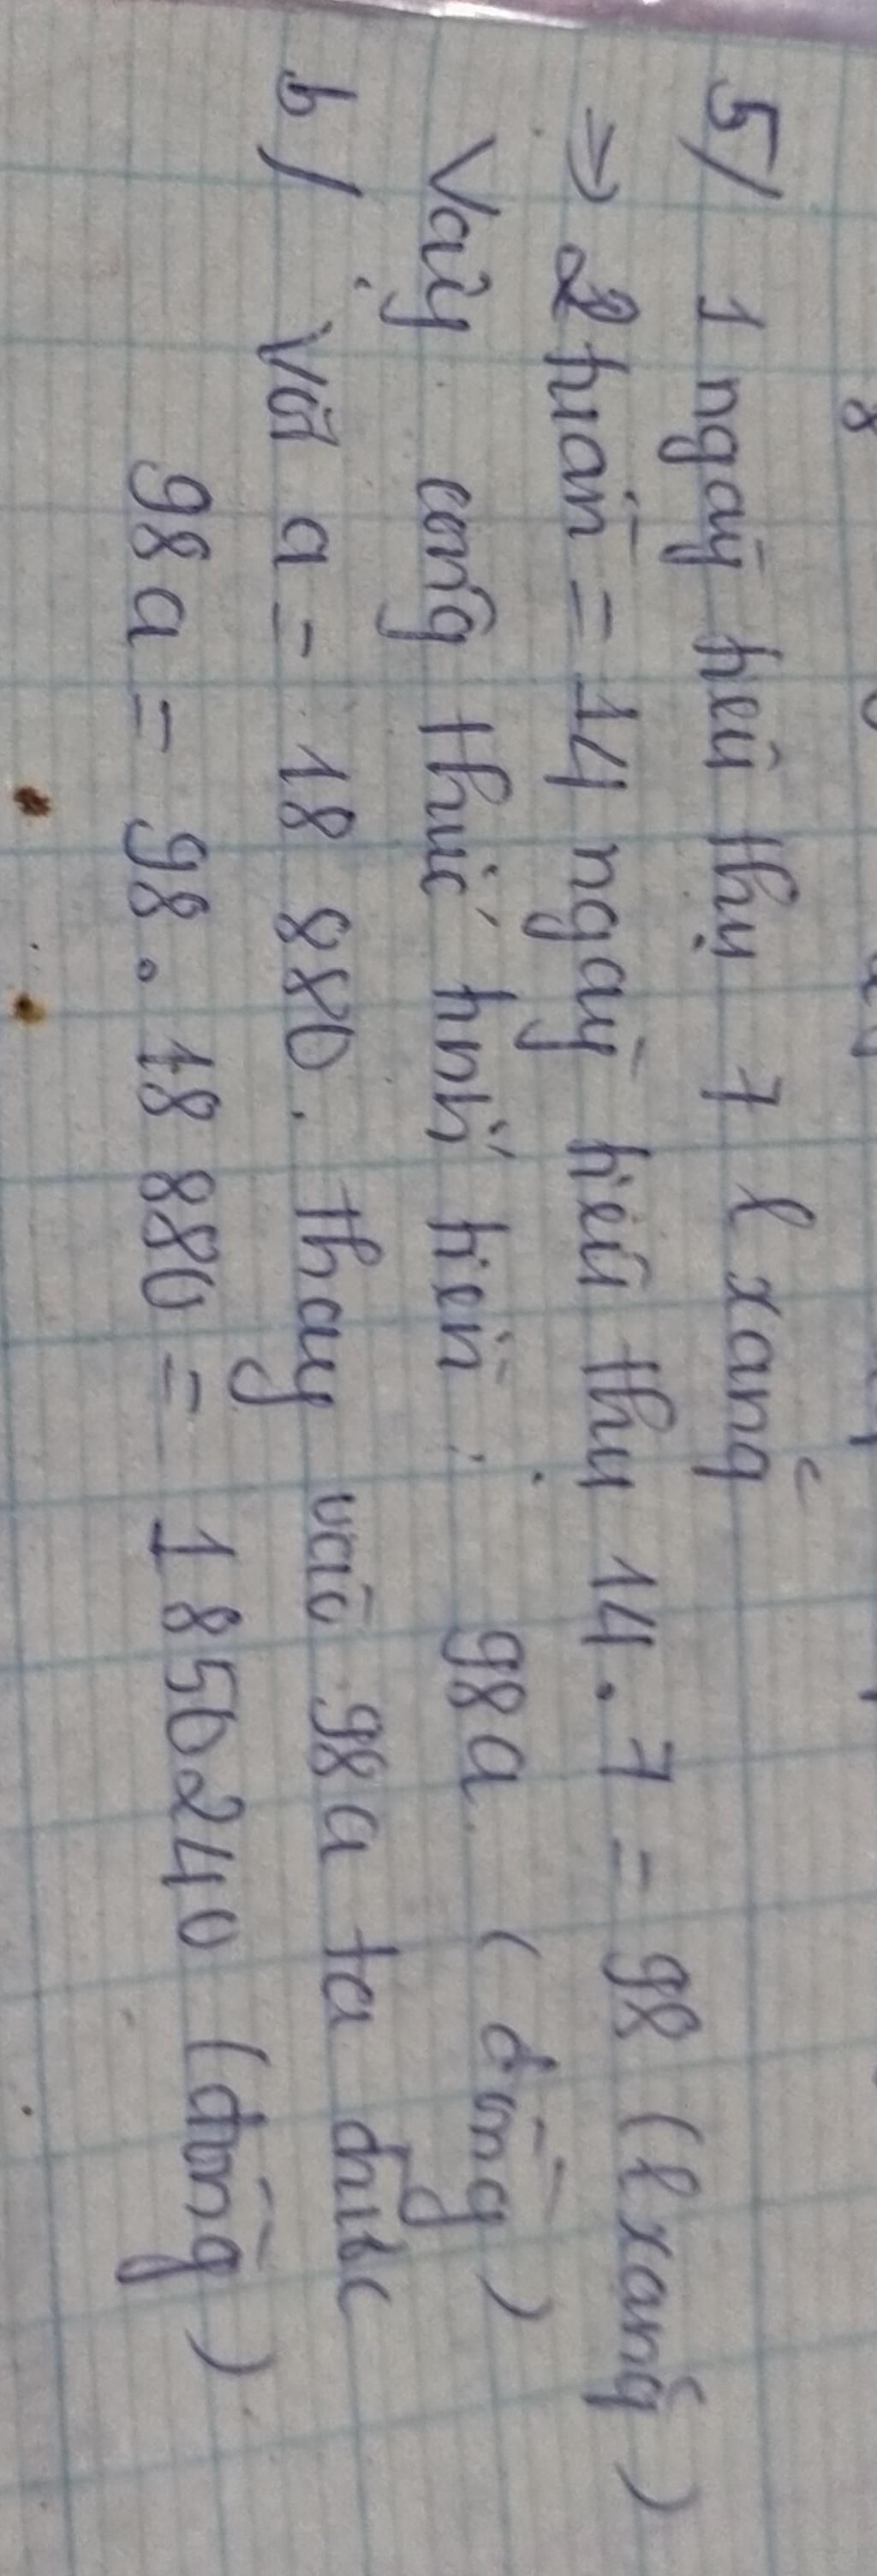 5/ 1 ngày tiêu thụ 7 l xăng
=> 2 tuần = 14 ngày tiêu thụ 14.7 = 98 (l xăng)
Vậy công thức tính tiền: 98a (đồng)
b/ Với a = 18 880. thay vào 98a ta được
98a = 98.18 880 = 1850240 (đồng)